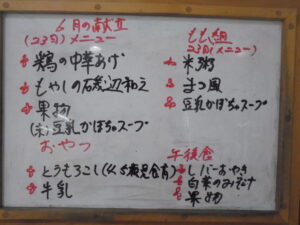 6月の献立
(23日)メニュー
鶏の中華あげ
もやしの磯辺和え
果物
豆乳かぼちゃスープ
おやつ
とうもろこし(4,5歳児食育)
牛乳
もも組
23日(メニュー)
米粥
豆乳かぼちゃスープ
午後食
レバーおやき
白菜のみそ汁
果物